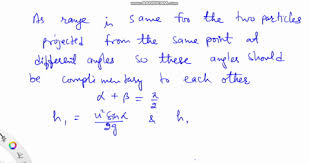 As range is same for the two particles
projected from the same point at
different angles so these angles should
be complimentary to each other
α + β = π/2
h₁ = u² sin α / 2g & h,